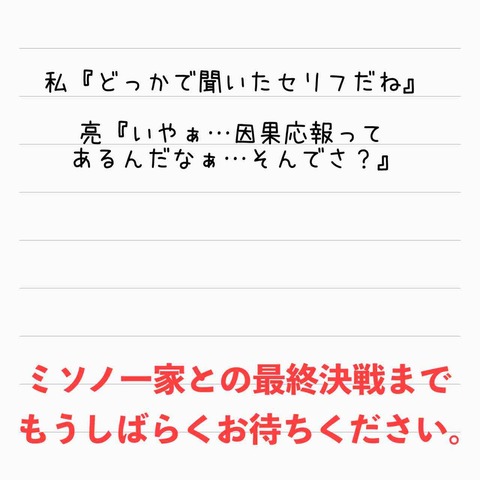 私『どっかで聞いたセリフだね』
亮『いやぁ…因果応報って
あるんだなぁ…そんでさ？』
ミソノ一家との最終決戦まで
もうしばらくお待ちください。